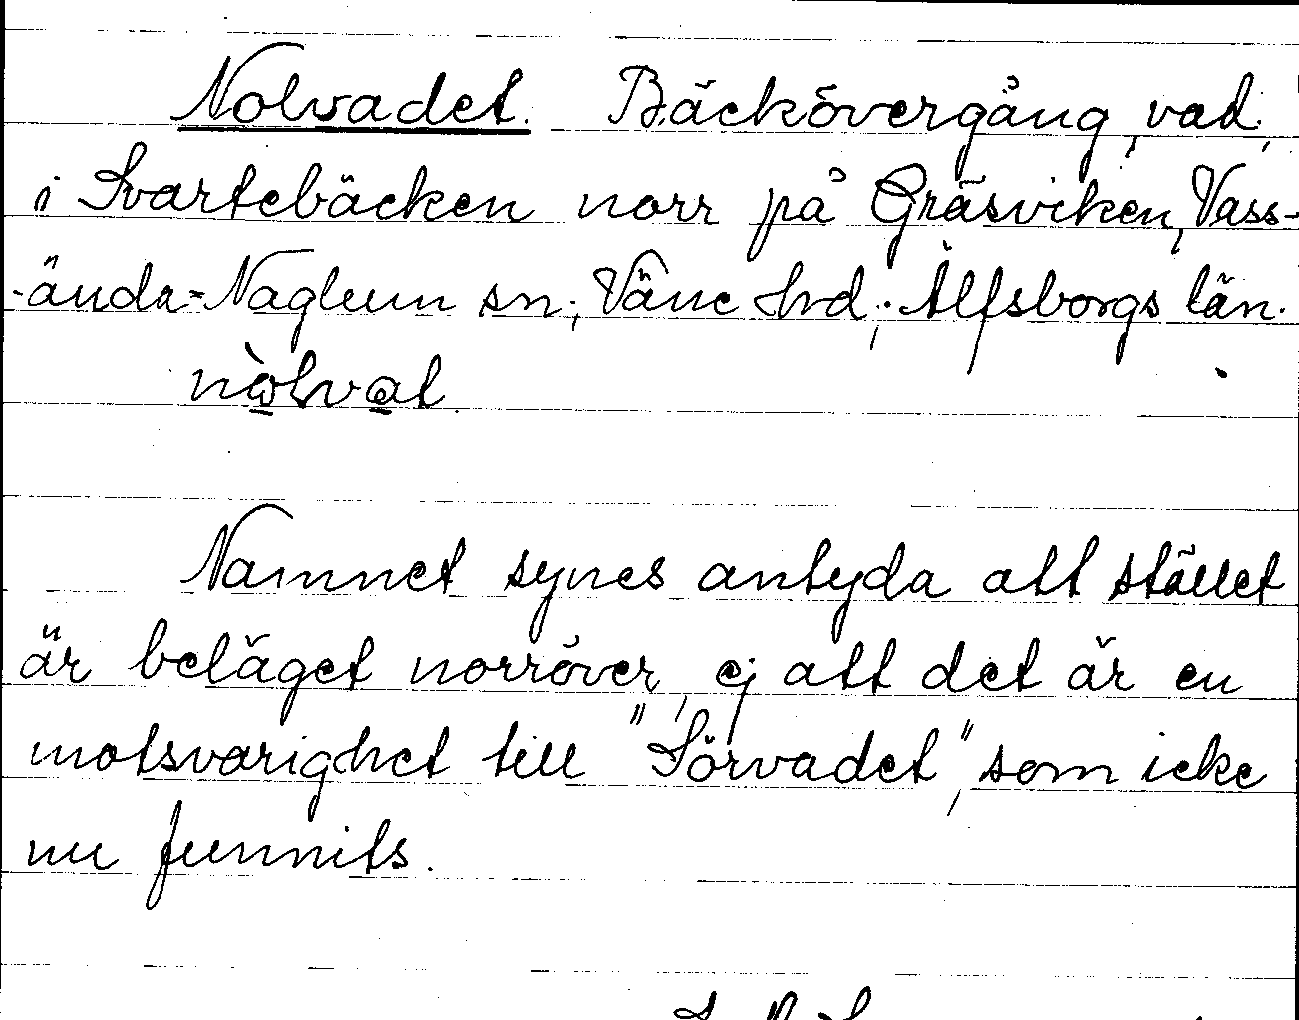 Nolvadet. Bäckövergång, vad,
i Svartebäcken norr på Gräsviken, Vass-
-ända-Naglum sn; Väne hrd; Älfsborgs län.
nòlvat
Namnet synes antyda att stället
är beläget norröver, ej att det är en
motsvarighet till "Sörvadet", som icke
nu funnits.